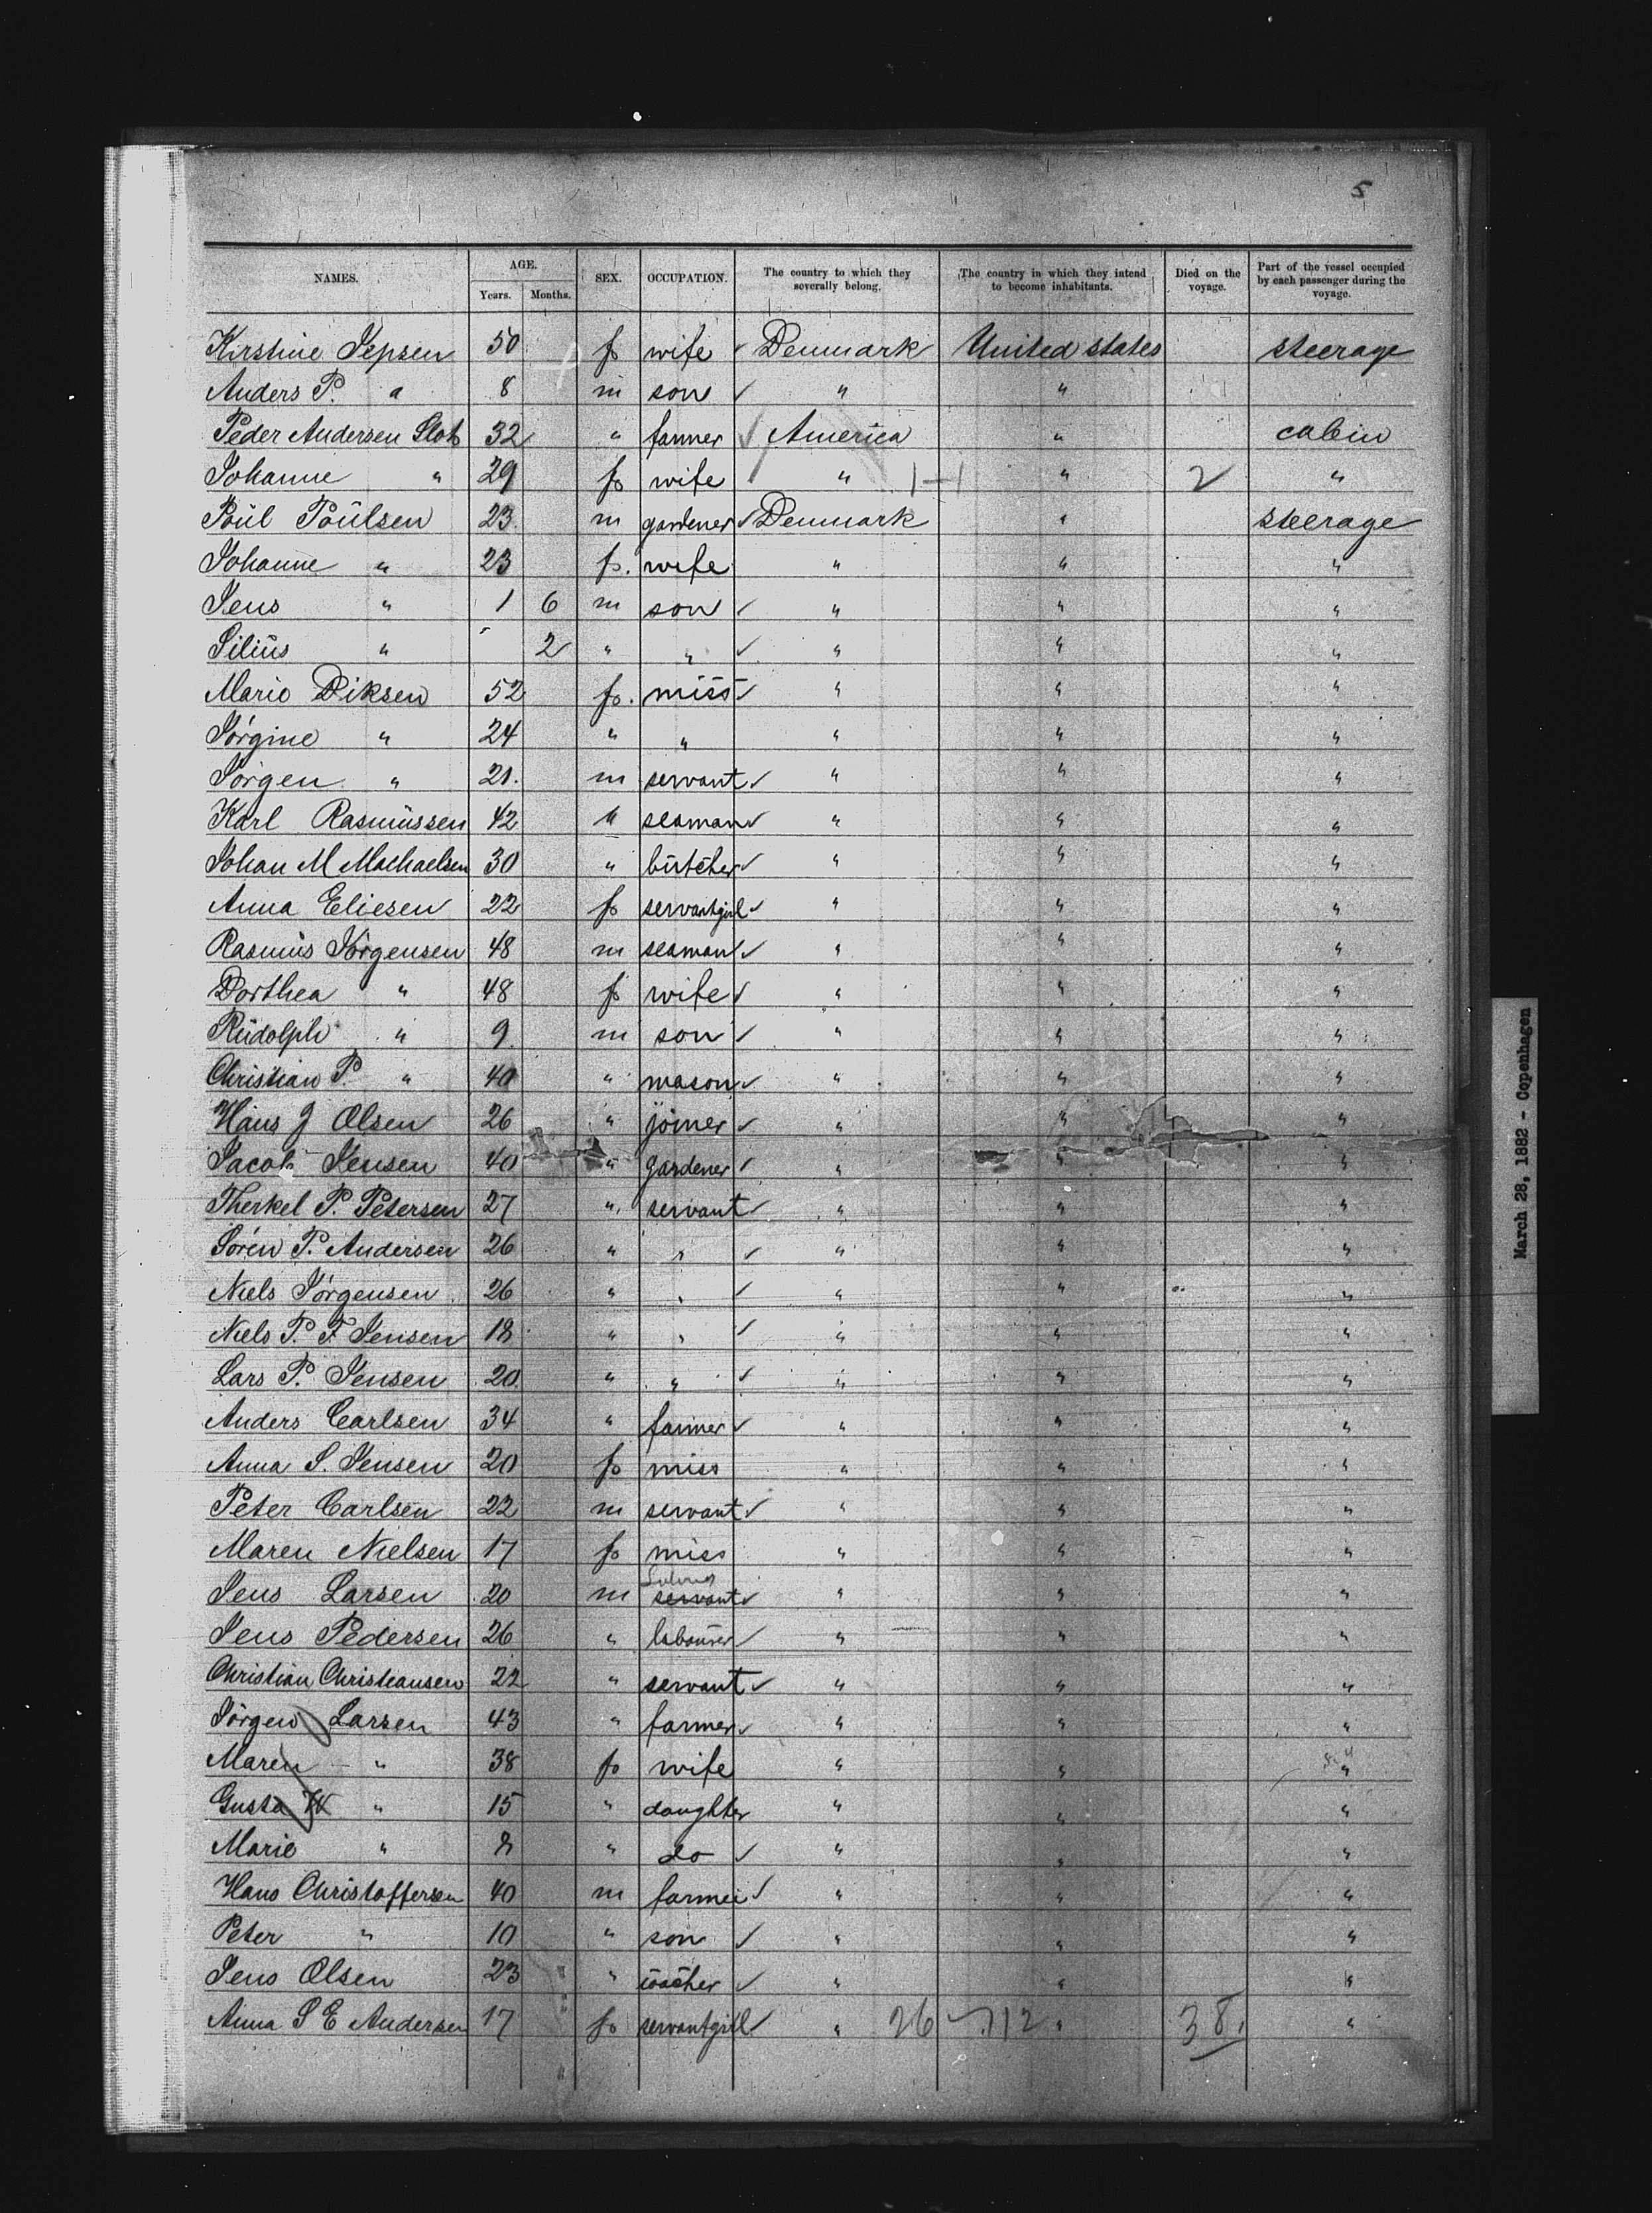 5
NAMES. AGE. Years. Months. SEX. OCCUPATION. The country to which they severally belong. The country in which they intend to become inhabitants. Died on the voyage. Part of the vessel occupied by each passenger during the voyage.
Kirstine Jepsen 50 f wife ✓ Denmark United states steerage
Anders P. " 8 m son ✓ " "
Peder Andersen Slot 32 " farmer ✓ America " cabin
Johanne " 29 f wife " 1-1 " 2 "
Poül Poülsen 23. m gardener ✓ Denmark " steerage
Johanne " 23 f. wife " " "
Jens " 1 6 m son ✓ " " "
Silius " 2 " " ✓ " " "
Marie Diksen 52 f. miss ✓ " " "
Jörgine " 24 " " " " "
Jörgen " 21. m servant ✓ " " "
Karl Rasmüssen 42 " seaman ✓ " " "
Johan M Machaelsen 30 " bütcher ✓ " " "
Anna Eliesen 22 f servantgirl ✓ " " "
Rasmüs Jörgensen 48 m seaman ✓ " " "
Dorthea " 48 f wife ✓ " " "
Rüdolph " 9. m son ✓ " " "
Christian P. " 40 " mason ✓ " " "
Hans J Olsen 26 " joiner ✓ " " "
Jacob Jensen 40 " gardener ✓ " " "
Therkel P. Petersen 27 " servant ✓ " " "
Sören P. Andersen 26 " " ✓ " " "
Niels Jörgensen 26 " " ✓ " " "
Niels P. F. Jensen 18 " " ✓ " " "
Lars P. Jensen 20. " " ✓ " " "
Anders Carlsen 34 " farmer ✓ " " "
Anna S. Jensen 20 f miss " " "
Peter Carlsen 22 m servant ✓ " " "
Maren Nielsen 17 f miss " " "
Jens Larsen 20 m servant ✓ " " "
Jens Pedersen 26 " laboürer ✓ " " "
Christian Christeansen 22 " servant ✓ " " "
Jörgen Larsen 43 " farmer ✓ " " "
Maren " 38 f wife " " "
Gusta " 15 " daughter " " "
Marie " 8 " do ✓ " " "
Hans Christoffersen 40 m farmer ✓ " " "
Peter " 10 " son ✓ " " "
Jens Olsen 23 " ✓ " " "
Anna S E Andersen 17 f servantgirl ✓ " 26 12 " 38. "
March 28, 1882 - Copenhagen